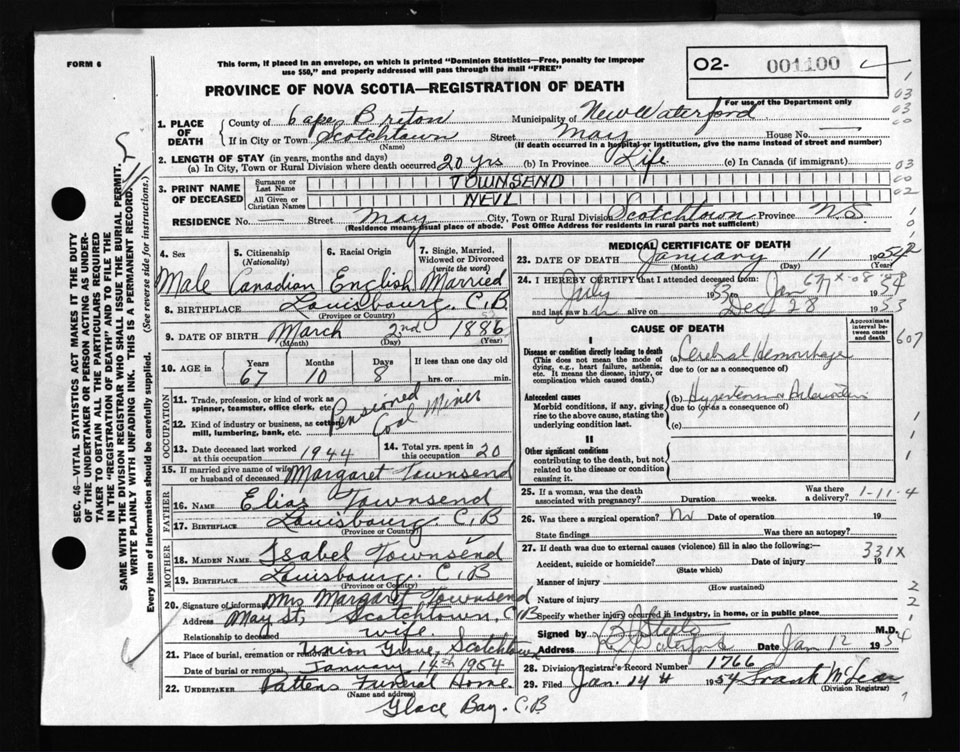 FORM 6
This form, if placed in an envelope, on which is printed "Dominion Statistics—Free, penalty for improper
use $50," and properly addressed will pass through the mail "FREE"
O2- 001100
For use of the Department only
PROVINCE OF NOVA SCOTIA—REGISTRATION OF DEATH
1. PLACE OF DEATH
County of Cape Breton Municipality of New Waterford
If in City or Town Scotchtown Street May House No. —
(Name) (If death occurred in a hospital or institution, give the name instead of street and number)
2. LENGTH OF STAY (in years, months and days)
(a) In City, Town or Rural Division where death occurred 20 yrs (b) In Province Life (c) In Canada (if immigrant)
3. PRINT NAME OF DECEASED
Surname or Last Name TOWNSEND
All Given or Christian Names NEIL
RESIDENCE No. — Street May City, Town or Rural Division Scotchtown Province N.S
(Residence means usual place of abode. Post Office Address for residents in rural parts not sufficient)
4. Sex Male
5. Citizenship (Nationality) Canadian
6. Racial Origin English
7. Single, Married, Widowed or Divorced (write the word) Married
8. BIRTHPLACE Louisbourg. C.B
(Province or Country)
9. DATE OF BIRTH March 2nd 1886
(Month) (Day) (Year)
10. AGE in Years 67 Months 10 Days 8 If less than one day old
hrs. or min.
OCCUPATION
11. Trade, profession, or kind of work as
spinner, teamster, office clerk, etc. Pensioned
12. Kind of industry or business, as cotton
mill, lumbering, bank, etc. Coal Miner
13. Date deceased last worked
at this occupation 1944
14. Total yrs. spent in
this occupation 20
15. If married give name of wife
or husband of deceased Margaret Townsend
FATHER
16. NAME Elias Townsend
17. BIRTHPLACE Louisbourg. C.B
(Province or Country)
MOTHER
18. MAIDEN NAME Isabel Townsend
19. BIRTHPLACE Louisbourg. C.B
(Province or Country)
20. Signature of informant Mrs Margaret Townsend
Address May St, Scotchtown, C.B
Relationship to deceased wife.
21. Place of burial, cremation or removal Union Grove, Scotchtown
Date of burial or removal January 14th 1954
22. UNDERTAKER Pattens Funeral Home
(Name and address)
Glace Bay. C.B
MEDICAL CERTIFICATE OF DEATH
23. DATE OF DEATH January 11 1954
(Month) (Day) (Year)
24. I HEREBY CERTIFY that I attended deceased from:
July 1953 to Jan 1954
and last saw h alive on Dec 28 1953
CAUSE OF DEATH
Approximate interval between onset and death
I
Disease or condition directly leading to death
(This does not mean the mode of
dying, e.g., heart failure, asthenia,
etc. It means the disease, injury, or
complication which caused death.)
(a) Cerebral Hemorrhage
due to (or as a consequence of)
Antecedent causes
Morbid conditions, if any, giving
rise to the above cause, stating the
underlying condition last.
(b)
due to (or as a consequence of)
(c)
II
Other significant conditions
contributing to the death, but not
related to the disease or condition
causing it.
25. If a woman, was the death
associated with pregnancy? Duration weeks. Was there
a delivery?
1-11-4
26. Was there a surgical operation? No Date of operation 19
State findings Was there an autopsy?
27. If death was due to external causes (violence) fill in also the following:—
331X
Accident, suicide or homicide? Date of injury 19
(State which)
Manner of injury
(How sustained)
Nature of injury
Specify whether injury occurred in industry, in home, or in public place
Signed by M.D.
Address Date Jan 12 1954
28. Division Registrar's Record Number 1766
29. Filed Jan. 14th 1954 Frank McLean
(Division Registrar)
SEC. 46—VITAL STATISTICS ACT MAKES IT THE DUTY
OF THE UNDERTAKER OR PERSON ACTING AS UNDER-
TAKER TO OBTAIN ALL THE PARTICULARS REQUIRED
IN THE "REGISTRATION OF DEATH" AND TO FILE THE
SAME WITH THE DIVISION REGISTRAR WHO SHALL ISSUE THE BURIAL PERMIT.
WRITE PLAINLY WITH UNFADING INK. THIS IS A PERMANENT RECORD.
Every item of information should be carefully supplied. (See reverse side for instructions.)